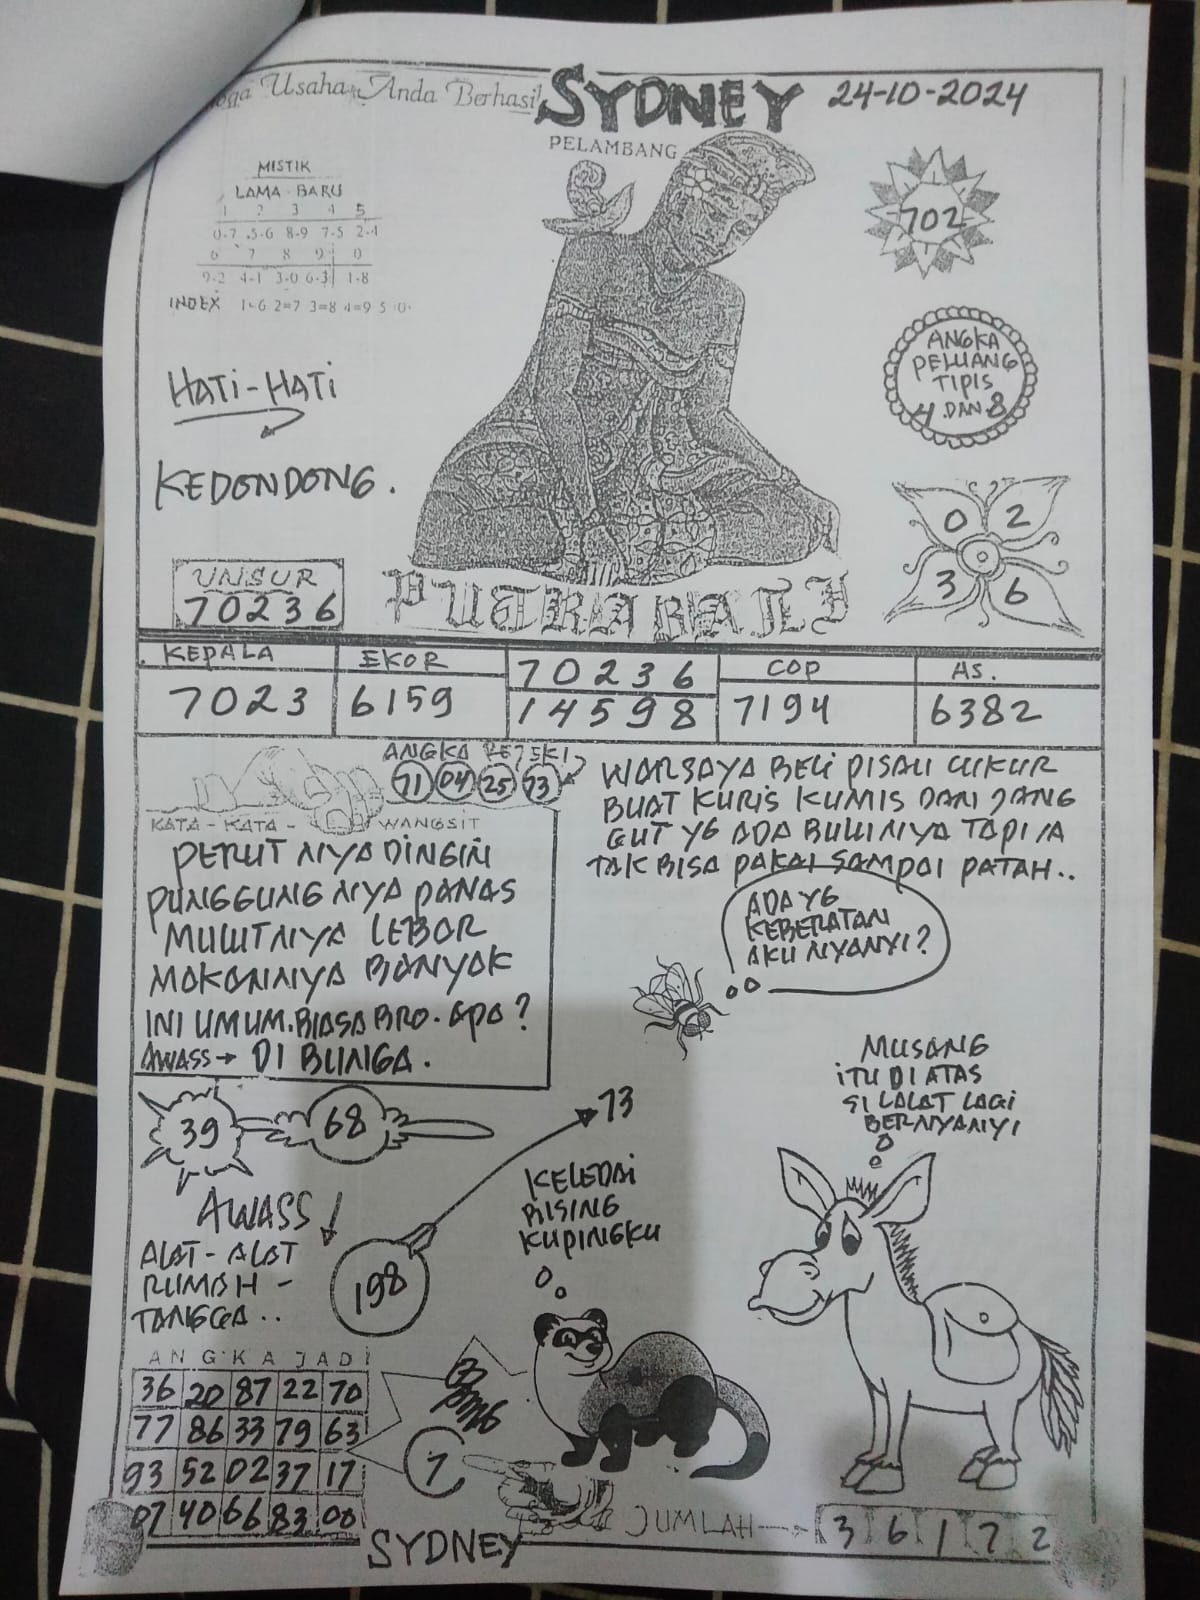 Usaha Anda Berhasil
SYDNEY
24-10-2024
PELAMBANG
MISTIK
LAMA - BARU
1 2 3 4 5
0-7 5-6 8-9 7-5 2-4
6 7 8 9 0
9-2 4-1 3-0 6-3 1-8
INDEX 1=6 2=7 3=8 4=9 5
702
ANGKA
PELUANG
TIPIS
4 DAN 8
HATI-HATI
KEDONDONG.
0 2
3 6
UNSUR
70236
PUTRA BALI
KEPALA
7023
EKOR
6159
70236
14598
COP
7194
AS.
6382
ANGKA REJEKI
71 04 25 73
KATA - KATA - WANGSIT
PERUT NYA DINGIN
PUNGGUNG NYA PANAS
MULUTNYA LEBAR
MAKANNYA BANYAK
INI UMUM.BIASA BRO. APA?
AWASS → DI BUNGA.
WARSAYA BELI PISAU CUKUR
BUAT KURIS KUMIS DAN JANG
GUT YG ADA BULUNYA TAPI IA
TAK BISA PAKAI SAMPAI PATAH..
ADA YG
KEBERATAN
AKU NYANYI?
MUSANG
ITU DI ATAS
SI LALAT LAGI
BERNYANYI
39
68
73
KELEDAI
BISING
KUPINGKU
AWASS
ALAT - ALAT
RUMAH -
TANGGA..
198
ANGKA JADI
36 20 87 22 70
77 86 33 79 63
93 52 02 37 17
07 40 66 83 00
7
JUMLAH → 3 6 1 7 2
SYDNEY